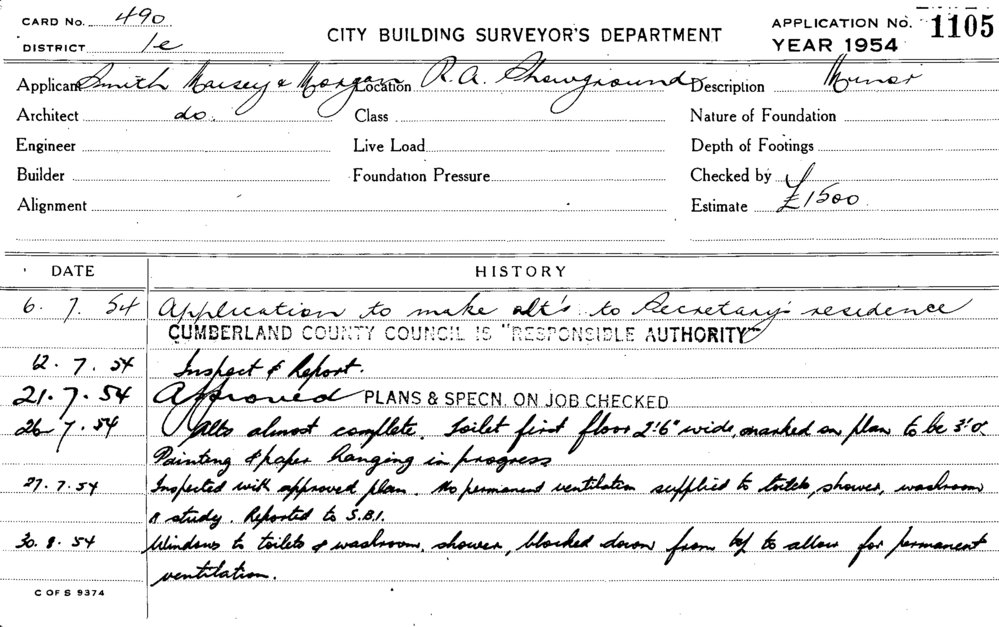 CARD No. 490
DISTRICT 1e
CITY BUILDING SURVEYOR'S DEPARTMENT
APPLICATION No. 1105
YEAR 1954
Applicant Smith Maisey & Morgan Location R.A. Showground Description Minor
Architect do. Class Nature of Foundation
Engineer Live Load Depth of Footings
Builder Foundation Pressure Checked by
Alignment Estimate £1500
DATE HISTORY
6. 7. 54 Application to make alt's to Secretary's residence
CUMBERLAND COUNTY COUNCIL IS "RESPONSIBLE AUTHORITY"
12. 7. 54 Inspect & Report.
21. 7. 54 Approved PLANS & SPECN. ON JOB CHECKED
26 7. 54 Alts almost complete. Toilet first floor 2'.6" wide, marked on plan to be 3'.0
Painting & paper hanging in progress
27. 7. 54 Inspected with approved plan. No permanent ventilation supplied to toilets, shower, washroom
& study. Reported to S.B.I.
30. 8. 54 Windows to toilets & washroom, shower, blocked down from top to allow for permanent
ventilation.
C OF S 9374